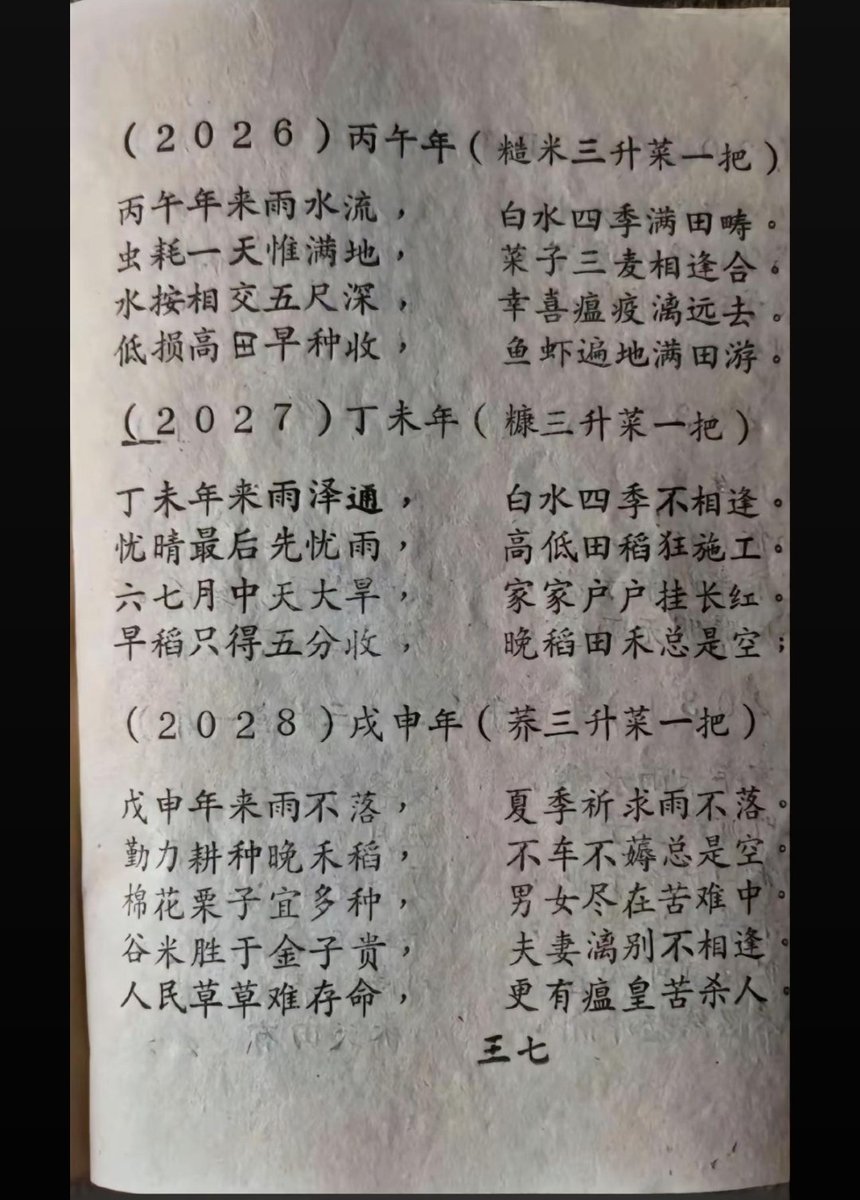 (2026)丙午年(糙米三升菜一把)
丙午年来雨水流， 白水四季满田畴。
虫耗一天惟满地， 菜子三麦相逢合。
水按相交五尺深， 幸喜瘟疫漓远去。
低损高田早种收， 鱼虾遍地满田游。
(2027)丁未年(糠三升菜一把)
丁未年来雨泽通， 白水四季不相逢。
忧晴最后先忧雨， 高低田稻狂施工。
六七月中天大旱， 家家户户挂长红。
早稻只得五分收， 晚稻田禾总是空；
(2028)戌申年(荞三升菜一把)
戊申年来雨不落， 夏季祈求雨不落。
勤力耕种晚禾稻， 不车不薅总是空。
棉花栗子宜多种， 男女尽在苦难中。
谷米胜于金子贵， 夫妻漓别不相逢。
人民草草难存命， 更有瘟皇苦杀人。
王七